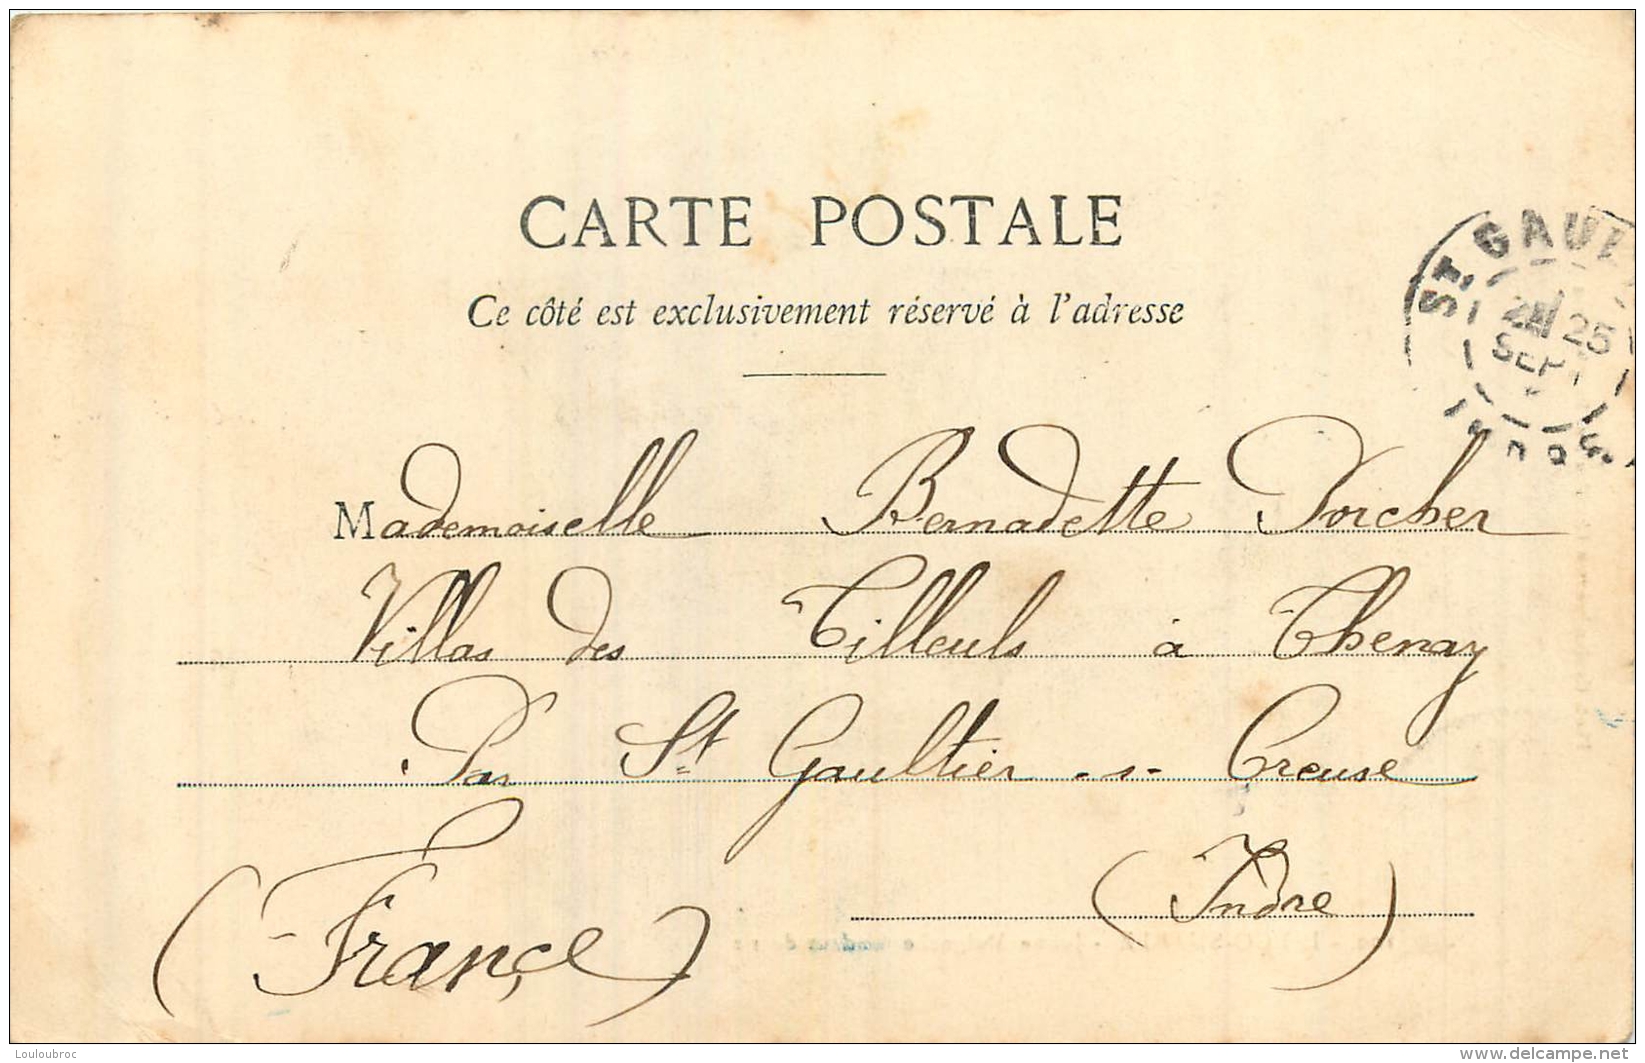 CARTE POSTALE
Ce côté est exclusivement réservé à l'adresse
ST. GAUL
25
SEPT
Mademoiselle Bernadette Porcher
Villas des Tilleuls à Thenay
Par St Gaultier -s- Creuse
(Indre)
(Françe)
Louloubroc
delcampe.net